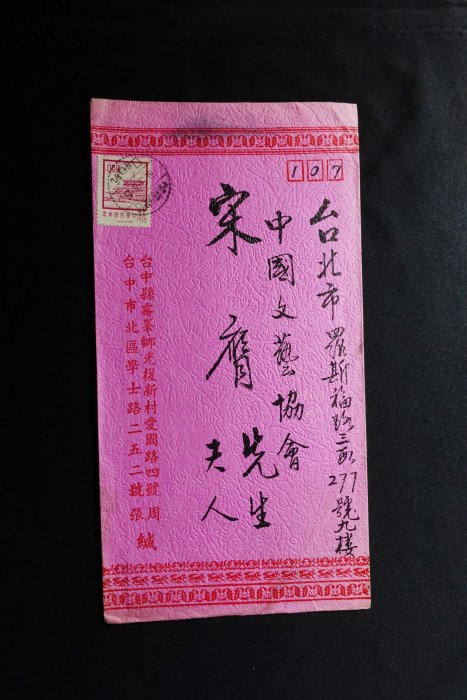 107
台北市羅斯福路三段277號九樓
中國文藝協會
宋膺 先生
夫人
台中縣霧峯鄉光復新村愛國路四號周
台中市北區學士路二五二號張
緘